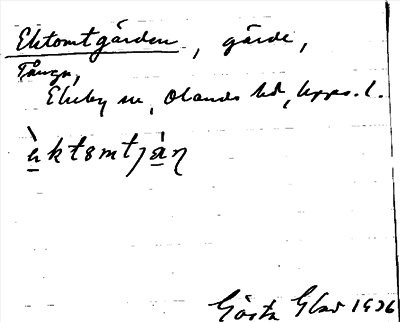 Ektomtgården, gärde,
Tånga,
Ekeby sn, Olands hd, Upps. l.
ὰktomtjàn
Gösta Glad 1936